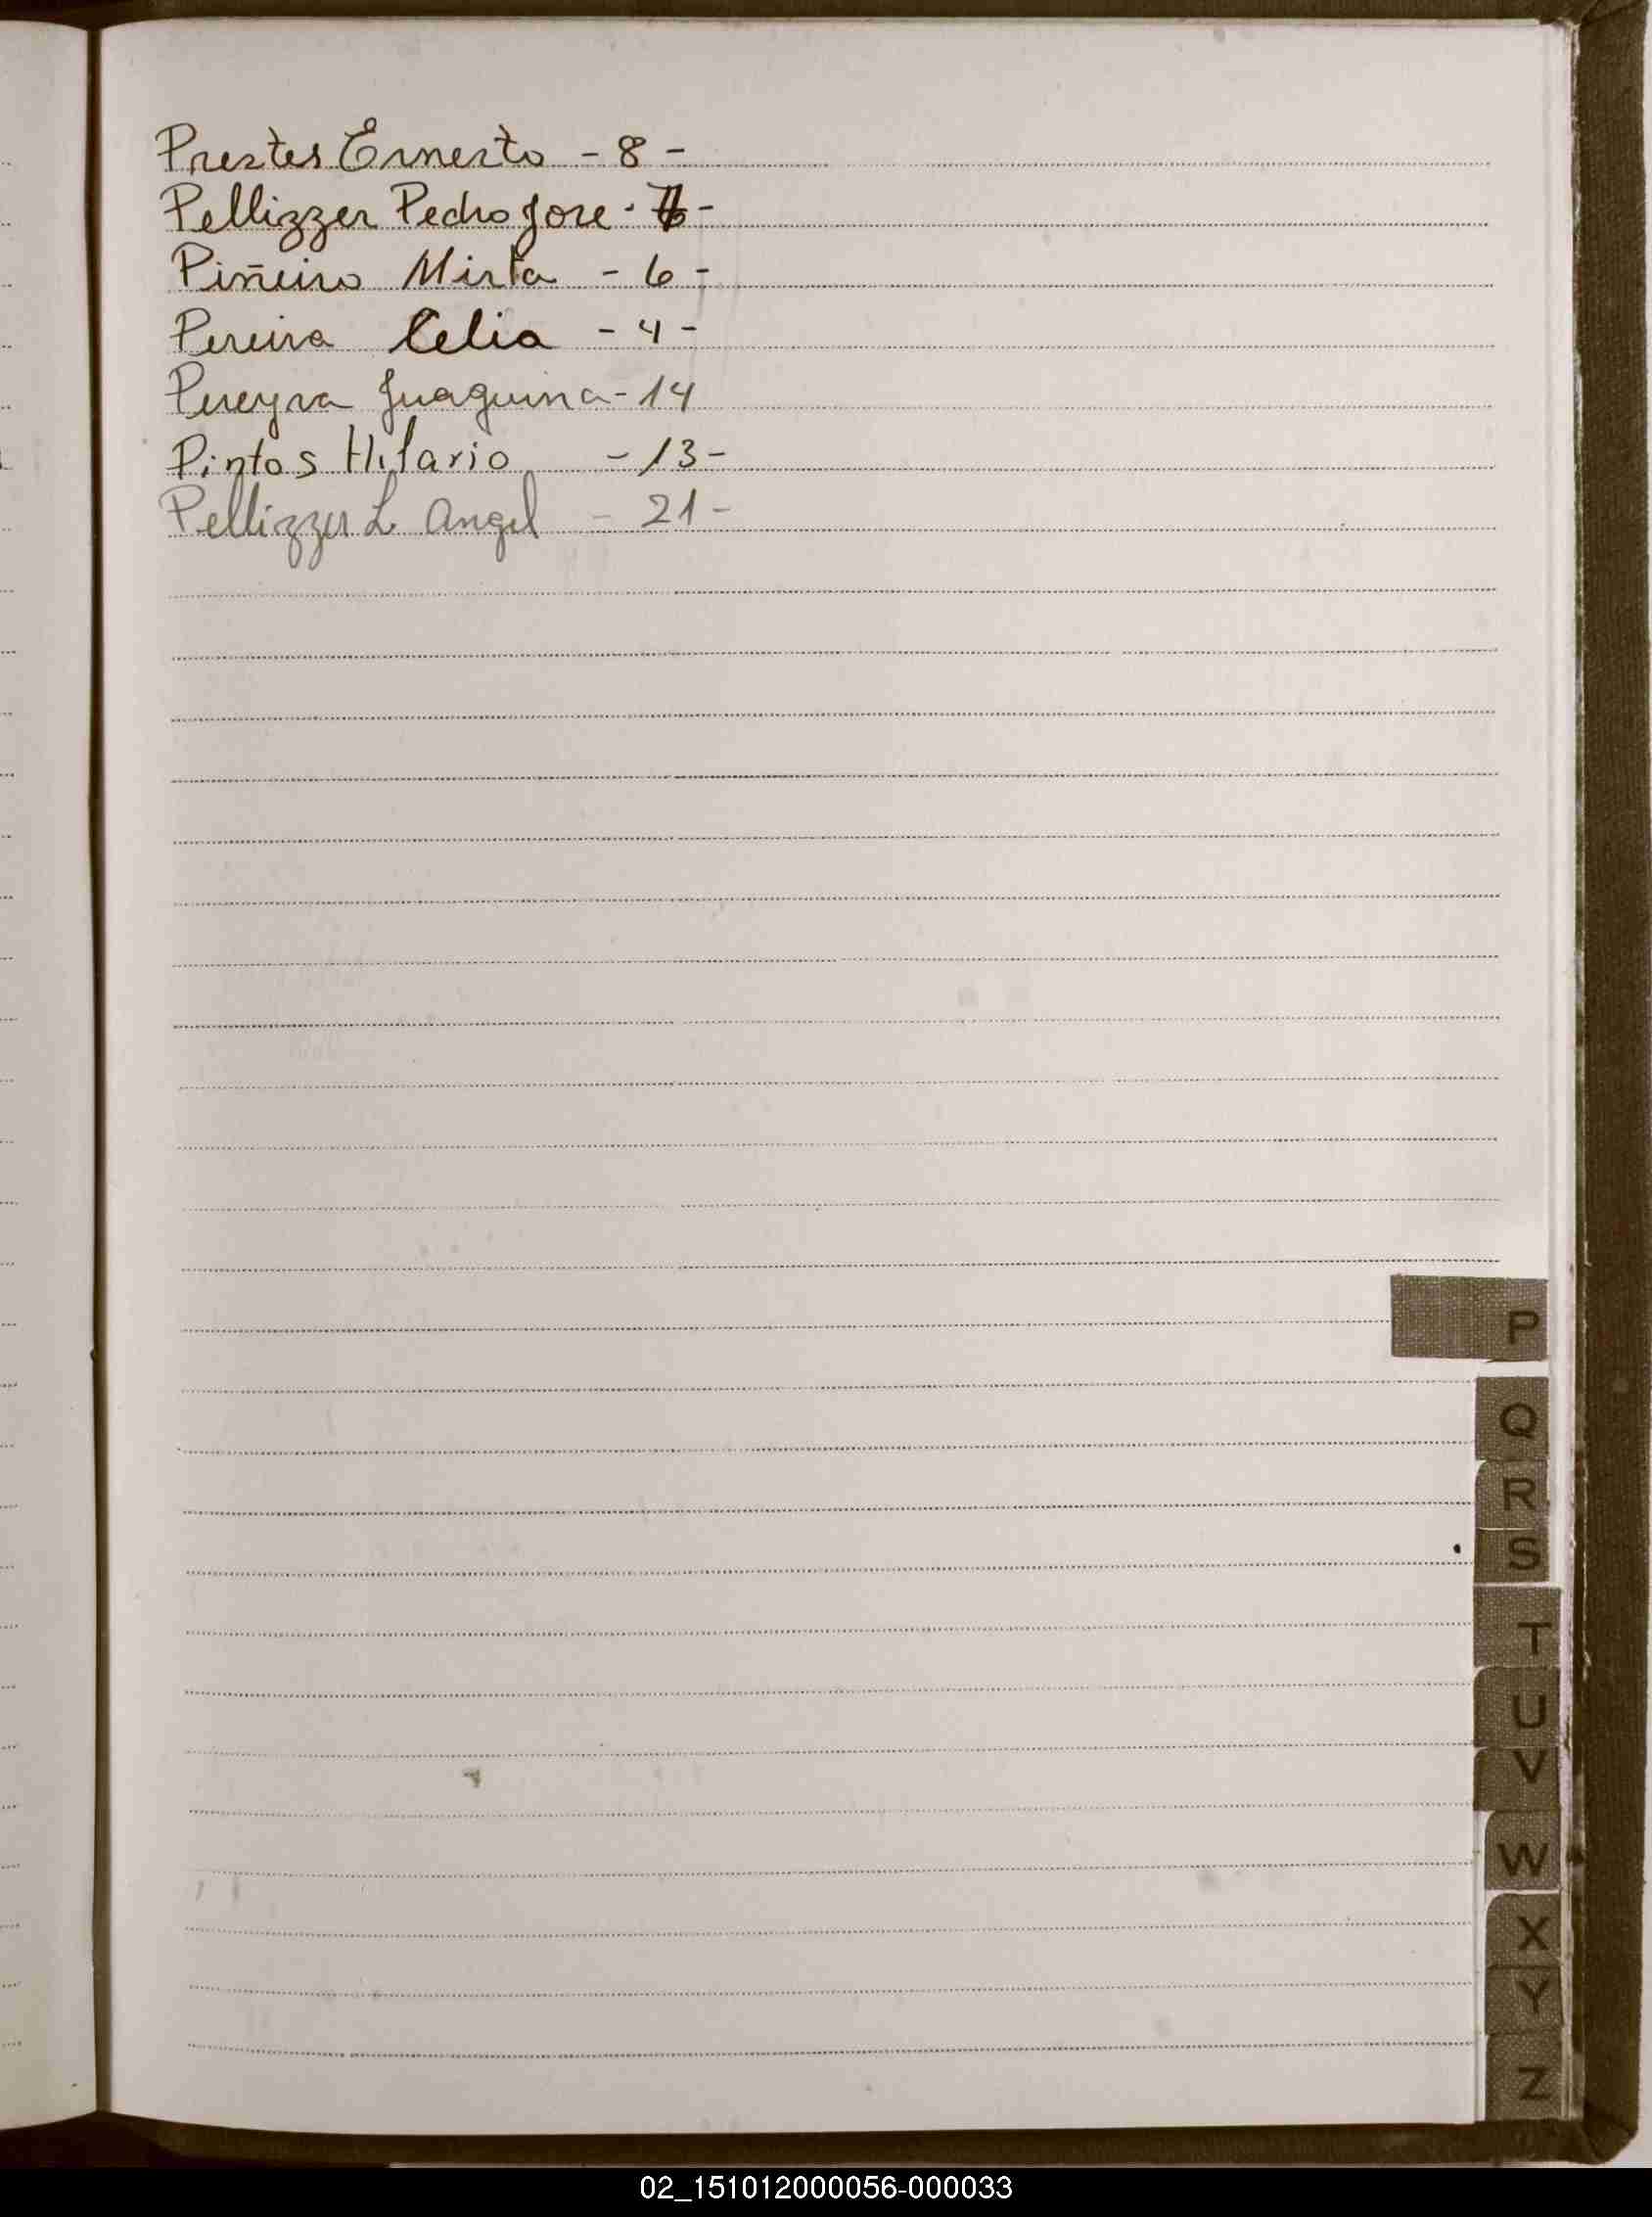 Prestes Ernesto - 8 -
Pellizzer Pedro Jose -
Piñeiro Mirta - 6 -
Pereira Celia - 4 -
Pereyra Juaquina - 14
Pintos Hilario - 13 -
Pellizzer L Angel - 21 -
P
Q
R
S
T
U
V
W
X
Y
Z
02_151012000056-000033